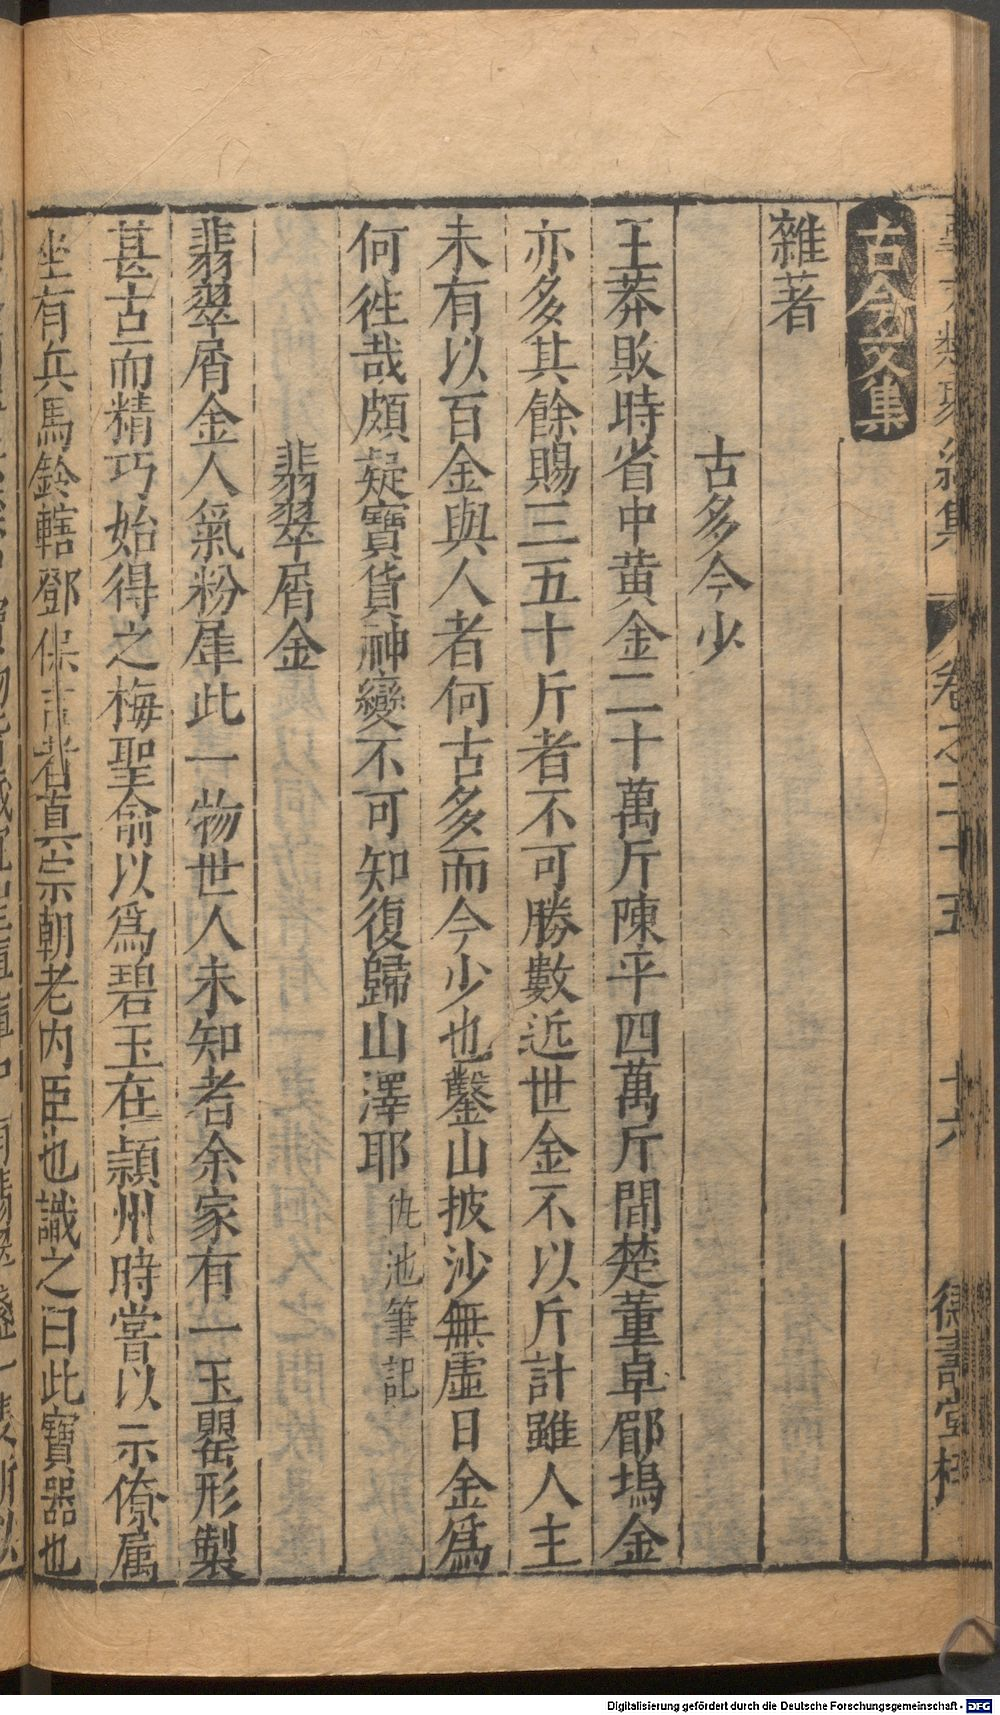 事文類聚續集 卷之二十五 十六 德壽堂梓
古今文集
雜著
古多今少
王莽敗時省中黄金二十萬斤陳平四萬斤間楚董卓郿塢金
亦多其餘賜三五十斤者不可勝數近世金不以斤計雖人主
未有以百金與人者何古多而今少也鑿山披沙無虛日金爲
何徃哉頗疑寶貨神變不可知復歸山澤耶 仇池筆記
翡翠屑金
翡翠屑金人氣粉犀此一物世人未知者余家有一玉罌形製
甚古而精巧始得之梅聖俞以爲碧玉在潁州時嘗以示僚属
坐有兵馬鈴轄鄧保吉者真宗朝老内臣也識之曰此寶器也
Digitalisierung gefördert durch die Deutsche Forschungsgemeinschaft - DFG